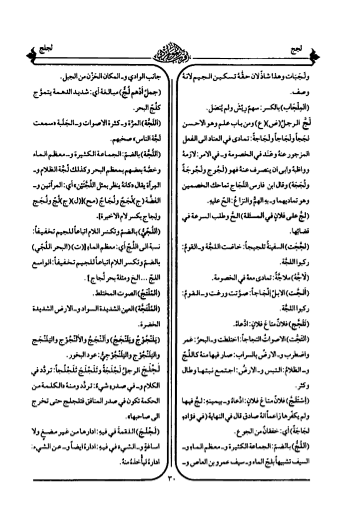 لجج
لجلج
ولَجَبات وهذا شاذّ لان حقّهُ تسكين الجيم لانهُ
وصف.
(المِلْجَاب) بالكسر: سهمٌ ريش ولم يُنصَل.
لَجَّ الرجلُ (ض) (ع) ومن باب علم وهو الاحسن
لَجَجاً ولَجاجاً ولَجاجةً: تمادى في العناد الى الفعل
المزجور عنهُ وعَنَد في الخصومة و- في الامر: لازمهُ
وواظبهُ وابى ان ينصرف عنهُ فهو (لَجوج ولَجوجَة
ولُجَجَة) وقال ابن فارس اللَجاج تماحك الخصمين
وهو تماديهما و- بهِ الهمّ والنزاعُ: الحّ عليهِ.
(لَجَّ على فلان في المسئلة) الحّ وطلب السرعة في
قضائها.
(لَجَّجت) السفينةُ تلجيجاً: خاضت اللجّة و- القومُ:
ركبوا اللجّة.
(لاجّهُ) ملاجّةً: تمادى معهُ في الخصومة.
(أَلَجَّت) الابلُ إلجاجاً: صوّتت ورغت و- القومُ:
ركبوا اللُجّة.
(تَلَجَّج) فلانٌ متاعَ فلان: ادّعاهُ.
(التَجَّت) الاصوات التجاجاً: اختلطت و- البحرُ: غمر
واضطرب و- الارضُ بالسراب: صار فيها منهُ كاللُجّ
و- الظلامُ: التبس و- الارضُ: اجتمع نبتها وطال
وكثر.
(اِستَلَجَّ) فلانٌ متاعَ فلان: ادّعاهُ و- بيمينهِ: لجّ فيها
ولم يكفّرها زاعماً انهُ صادق قال في النهاية (في فؤادهِ
لَجاجَةٌ) اي: خفقانٌ من الجوع.
(اللُجّ) بالضمّ: الجماعة الكثيرة و- معظم الماء و-
السيف تشبيهاً بلجّ الماء و- سيف عمرو بن العاص و-
جانب الوادي و- المكان الحَزْن من الجبل.
(جملٌ أَدهَم لُجّ) مبالغة أي: شديد الدهمة يتموّج
كلجّ البحر.
(اللَجَّة) المرّة و- كثرة الاصوات و- الجلبة «سمعت
لجّة الناس» صخبهم.
(اللُجّة) بالضمّ: الجماعة الكثيرة و- معظم الماء
وخصّهُ بعضهم بمعظم البحر وكذلك لجّة الظلام و-
المرآة يقال «كأنهُ ينظر بمثل اللُجَّتَيْن» أي: المرآتين و-
الفضّة (ج) لُجَجٌ ولُجَاجٌ
ولِجاج بكسر لام الاخيرة).
(اللُجّيّ) بالضمّ وتكسر اللام اتباعاً للجيم تخفيفاً:
نسبة الى اللُجّ أي: معظم الماء (ت) (البحر اللُجّي)
بالضمّ وتكسر اللام اتباعاً للجيم تخفيفاً: الواسع
اللُجّ... الخ ومثلهُ بحر لُجاج].
(المُلْتَجّ) الصوت المختلط.
(المُلْتَجَّة) العين الشديدة السواد و- الارض الشديدة
الخضرة.
(يَلَنْجُج ويَلَنْجَج) وأَلَنْجَج والأَلَنْجُوج واليَلَنْجَج
واليَلَنْجُوج واليَلَنْجُوجيّ: عود البخور.
لَجْلَجَ الرجلُ لَجْلَجَةً وتَلَجْلَجَ تَلَجْلُجاً: تردّد في
الكلام و- في صدره شيءٌ: تردّد ومنهُ «الكلمة من
الحكمة تكون في صدر المنافق فتلجلج حتى تخرج
الى صاحبها».
(لَجْلَجَ) اللقمة في فيهِ: ادارها من غير مضغ ولا
اساغة و- الشيءَ في فيهِ: ادارهُ ايضاً و- عن الشيء:
ادارهُ ليأخذهُ منهُ.
٣٠